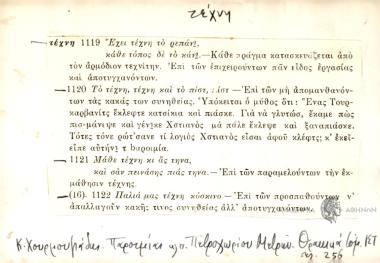 τέχνη
τέχνη 1119 Ἔχει τέχνη τὸ ρεπάνι,
κάθε τόπος δὲ τὸ κάνι.—Κάθε πράγμα κατασκευάζεται ἀπὸ
τὸν ἁρμόδιον τεχνίτην. Ἐπὶ τῶν ἐπιχειρούντων πᾶν εἶδος ἐργασίας
καὶ ἀποτυγχανόντων.
—1120 Τὸ τέχνη, τέχνη καὶ τὸ πίστ, πίστ — Ἐπὶ τῶν μὴ ἀπομανθανόν-
των τὰς κακάς των συνηθείας. Ὑπόκειται ὁ μῦθος ὅτι: Ἕνας Τουρ-
καρβανίτς ἔκλεφτε κατσίκια καὶ πιάσκε. Γιὰ νὰ γλυτώσ, ἔκαμε πὼς
πισ-μάνεψε καὶ γένγκε Χστιανὸς μὰ πάλε ἔκλεψε καὶ ξαναπιάσκε.
Τότες τόνε ρώτ'σανε τὶ λογιὸς Χστιανὸς εἶσαι ἀφοῦ κλέφτς; κ' ἐκεῖ-
εἶπε αὐτήν τ παροιμία.
1121 Μάθε τέχνη κι ἄς τηνα,
καὶ σὰν πεινάσης πιάς τηνα.— Ἐπὶ τῶν παραμελούντων τὴν ἐκ-
μάθησιν τέχνης.
(16). 1122 Παλιά μας τέχνη κόσκινο — Ἐπὶ τῶν προσπαθούντων ν'
ἀπαλλαγοῦν κακῆς τινος συνηθείας ἀλλ' ἀποτυγχανόντων.
Κ. Χουρμουζιάδης. Παροιμίαι Πετροχωρίου Μετρῶν. Θρακικά τόμ. ΙΣΤ
σελ. 256
ΑΘΗΝΩΝ